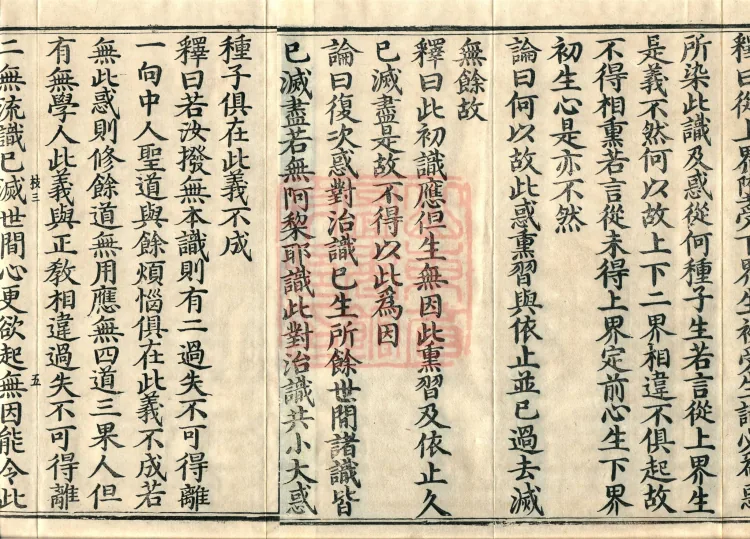 所染此識及惑從何種子生若言從上界生
是義不然何以故上下二界相違不俱起故
不得相熏若言從未得上界定前心生下界
初生心是亦不然
論曰何以故此惑熏習與依止並已過去滅
無餘故
釋曰此初識應但生無因此熏習及依止久
已滅盡是故不得以此為因
論曰復次惑對治識已生所餘世間諸識皆
已滅盡若無阿黎耶識此對治識共小大惑
種子俱在此義不成
釋曰若汝撥無本識則有二過失不可得離
一向中人聖道與餘煩惱俱在此義不成若
無此惑則修餘道無用應無四道三果人但
有無學人此義與正教相違過失不可得離
技三 五
二無流識已滅世間心更欲起無因能令此